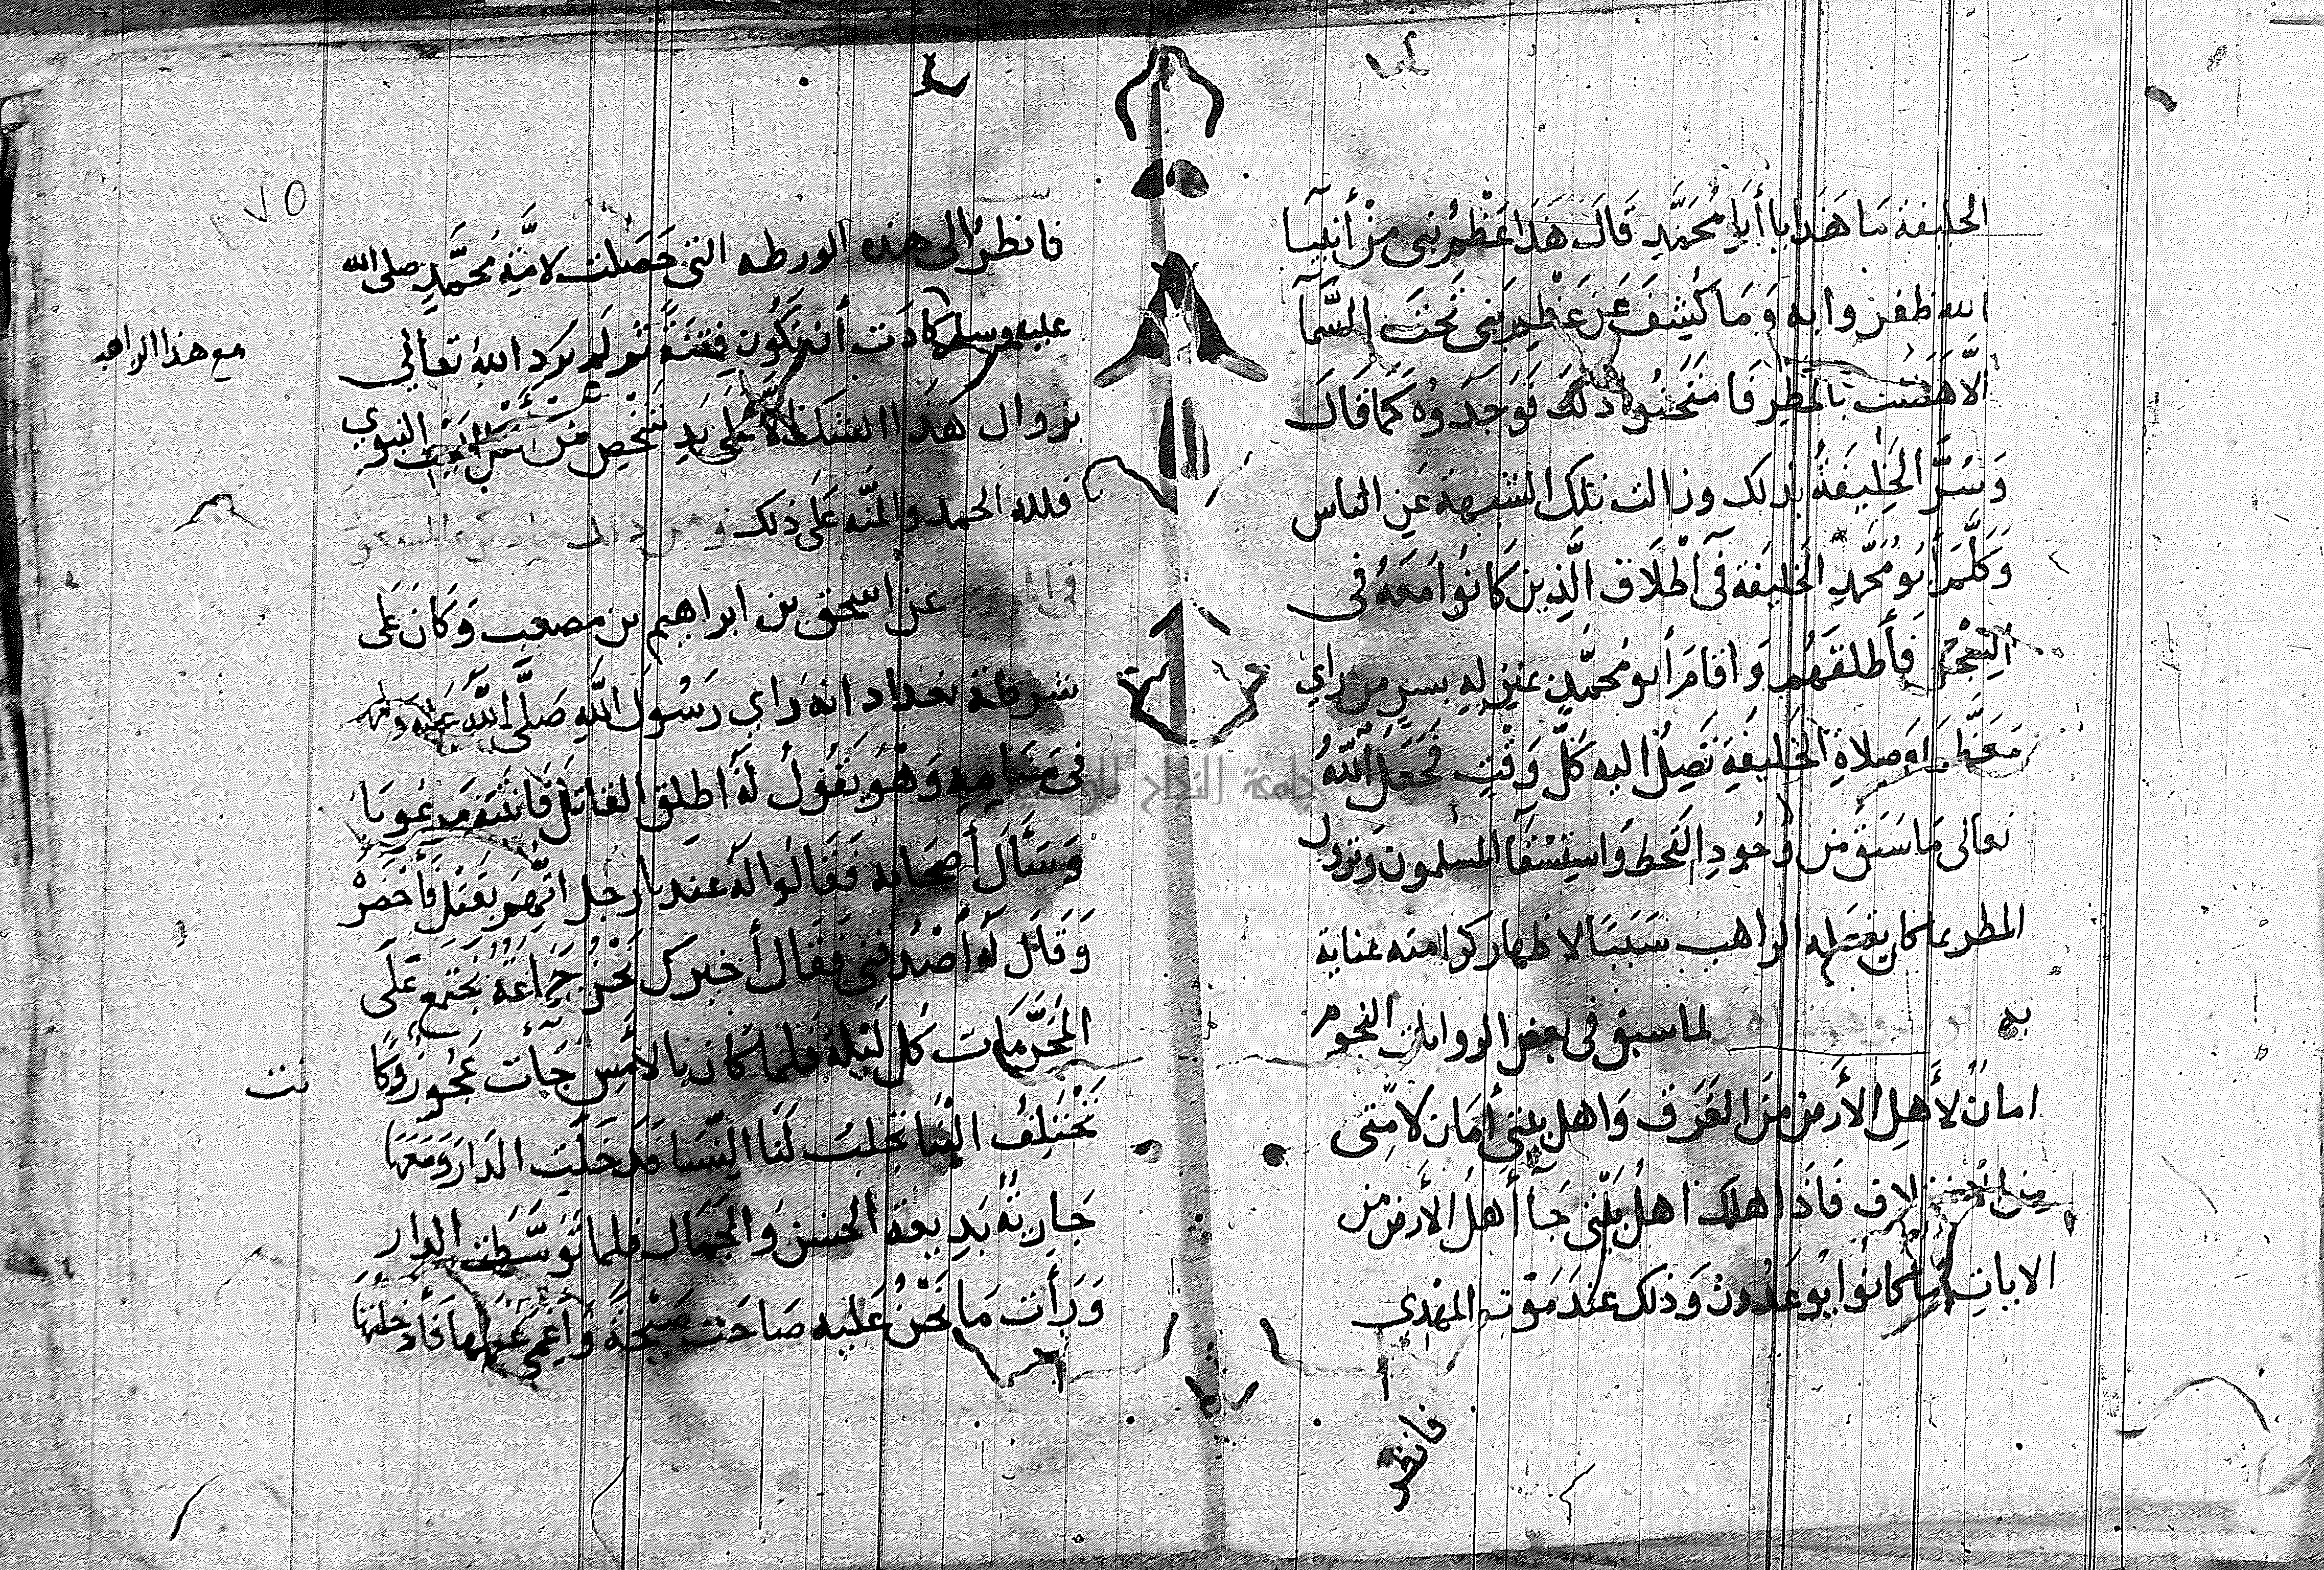 الخليفة مَا هَذا يا أبَا مُحَمَّدٍ قَالَ هَذَا عَظْمُ نبي مِنْ أنبيآ
الله ظفروا به وَمَا كُشِفَ عَنْ عَظْمِ نَبِي تَحْتَ السَّمآ
الّا هَطَلَت بالمَطَرِ فَامتَحَنُوا ذلكَ فَوَجَدُوه كَمَا قَالَ
وَسُرَّ الخَلِيفَةُ بذلك وزالت تلك الشبهة عَنِ الناس
وَكَلَّمَ أبُو مُحَمَّدٍ الخَليفَة في اطْلَاق الَّذِينَ كَانُوا مَعَهُ في
السِّجْنِ فَأَطلَقَهُم وَاقَامَ أبو مُحَمَّدٍ بمنزلِهِ بسر من راي
مَعَظَّمًا وَصلاةِ الخَليفَةِ تَصِلُ اليه كلَّ وَقْتٍ فَجَعَلَ اللهُ
تعالى مَا سَبَقَ مِن وُجُودِ القَحْطِ وَاستِسْقَآ المسلمون وَنزول
المطر بما كان يفعَله الراهب سَبَبًا لاظهار كرامته عناية
به لما سبق في بعض الروايات النجوم
امانٌ لأَهلِ الأَرضِ مِنَ الغَرَقِ وَاهل بيتي أمَان لامّتي
مِنَ الاختلاف فَاذَا هلَكَ اهلُ بَيْتي جَآ أَهلَ الأَرضِ من
الاياتِ مَا كانوا يُوعَدُونَ وَذلك عندَ مَوْتِ المهْدي
فانظر
١٧٥
فانظر إلى هذه الورطه التي حَصَلت لامَّة مُحَمَّدٍ صلى الله
عليه وسلم كادَت أن تكُون فِتنَة ثم لَم يُرِد اللهُ تعالى
مع هذا الراهب
بزوال هَذا إلا عَلَى يَدِ شَخْصٍ مِنْ البيت النبوي
فلله الحمد والمنَّه عَلَى ذلك ومن ذلك ما ذكره المسعودي
في عن اسحق بن ابراهيم بن مصعب وَكَانَ عَلى
شرطة بغداد انه رَاي رَسُولَ اللهِ صَلَّى اللهُ عَلَيْهِ وسلم
في مَنَامِهِ وَهُوَ يَقُولُ لهُ أطلق القاتل فَانتبَهَ مَرعُوبا
وَسَأَلَ أصحَابه فقَالُوا لهُ عندنا رَجل اتُّهِم بقَتْل فأَحْضَرَهُ
وَقَالَ لهُ أصْدُقني فَقَالَ أخبركَ نَحْنُ جَمَاعَةٌ نجتمع عَلَى
المُحَرَّمَات كل لَيْلة فَلما كان بالأَمْسِ جَآت عَجُوز وكا
نت
تَخْتَلِفُ الينَا تجلبُ لَنَا النِّسَا فَدَخَلَت الدَارَ وَمَعَهَا
جَارِيةٌ بَدِيعة الحسن وَالجَمَال فلما تَوَسَّطَت الدار
وَرَأَت مَا نَحْنُ عَليه صَاحَت صَيْحَةً وَاغمى عَلَيها فَأدخلتها